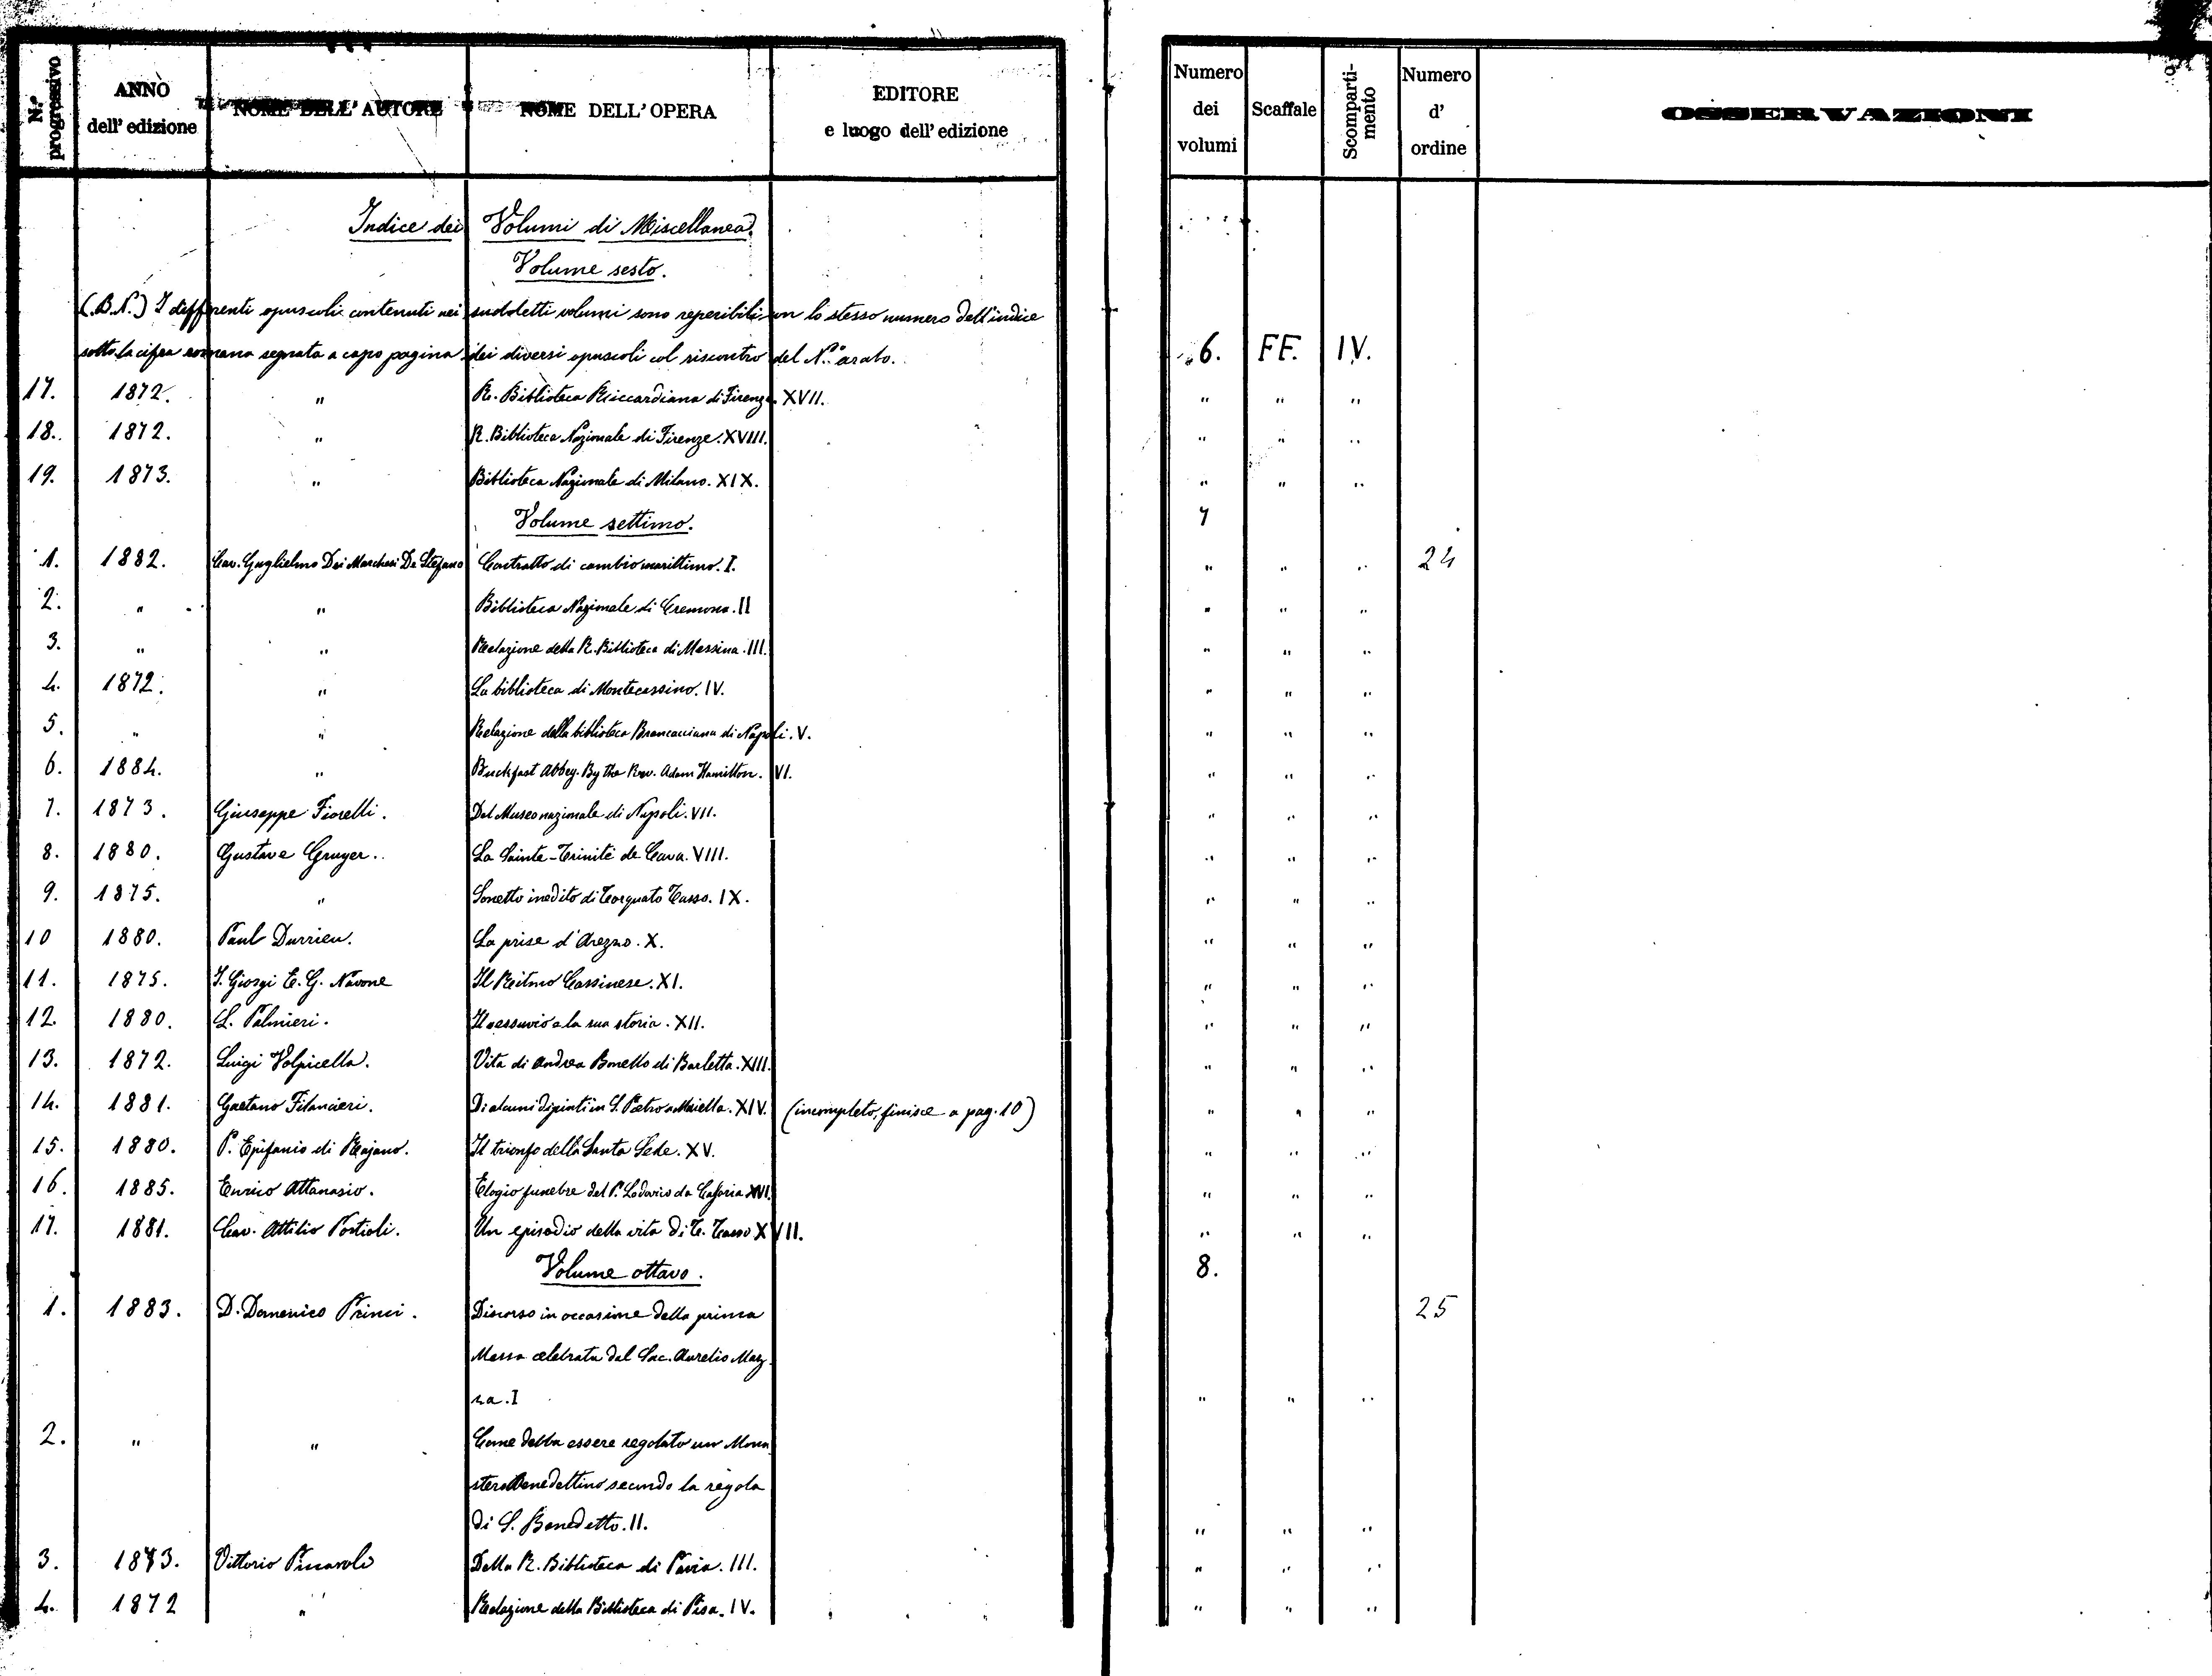 N.º progressivo | ANNO dell' edizione | NOME DELL' AUTORE | NOME DELL' OPERA | EDITORE e luogo dell' edizione | Numero dei volumi | Scaffale | Scomparti-mento | Numero d' ordine | OSSERVAZIONI
Indice dei Volumi di Miscellanea.
Volume sesto.
(.B.N.) I differenti opuscoli contenuti nei suddetti volumi sono reperibili con lo stesso numero dell'indice
sotto la cifra romana segnata a capo pagina dei diversi opuscoli col riscontro del N.º arabo. 6. FF. IV.
17. 1872. " R. Biblioteca Riccardiana di Firenze. XVII. " " "
18. 1872. " R. Biblioteca Nazionale di Firenze. XVIII. " " "
19. 1873. " Biblioteca Nazionale di Milano. XIX. " " "
Volume settimo. 7
1. 1882. Cav. Guglielmo Dei Marchesi De Stefano Contratto di cambio marittimo. I. " " " 24
2. " " Biblioteca Nazionale di Cremona. II " " "
3. " " Relazione della R. Biblioteca di Messina. III. " " "
4. 1872. " La biblioteca di Montecassino. IV. " " "
5. " " Relazione della biblioteca Brancacciana di Napoli. V. " " "
6. 1884. " Buckfast Abbey. By the Rev. Adam Hamilton. VI. " " "
7. 1873. Giuseppe Fiorelli. Del Museo nazionale di Napoli. VII. " " "
8. 1880. Gustave Gruyer. La Sainte-Trinité de Cava. VIII. " " "
9. 1875. " Sonetto inedito di Torquato Tasso. IX. " " "
10 1880. Paul Durrieu. La prise d'Arezzo. X. " " "
11. 1875. I. Giorgi E. G. Navone Il Ritmo Cassinese. XI. " " "
12. 1880. L. Palmieri. Il vesuvio e la sua storia. XII. " " "
13. 1872. Luigi Volpicella. Vita di Andrea Bonello di Barletta. XIII. " " "
14. 1881. Gaetano Filancieri. Di alcuni dipinti in S. Pietro a Maiella. XIV. (incompleto, finisce a pag. 10) " " "
15. 1880. P. Epifanio di Majano. Il trionfo della Santa Sede. XV. " " "
16. 1885. Enrico Attanasio. Elogio funebre del P. Lodovico da Casoria XVI. " " "
17. 1881. Cav. Attilio Portioli. Un episodio della vita di T. Tasso XVII. " " "
Volume ottavo. 8.
1. 1883. D. Domenico Princi. Discorso in occasione della prima 25
Messa celebrata dal Sac. Aurelio Maz
za. I " " "
2. " " Come debba essere regolato un Mona
stero Benedettino secondo la regola
di S. Benedetto. II. " " "
3. 1873. Vittorio Della R. Biblioteca di Pavia. III. " " "
4. 1872 " Relazione della Biblioteca di Pisa. IV. " " "